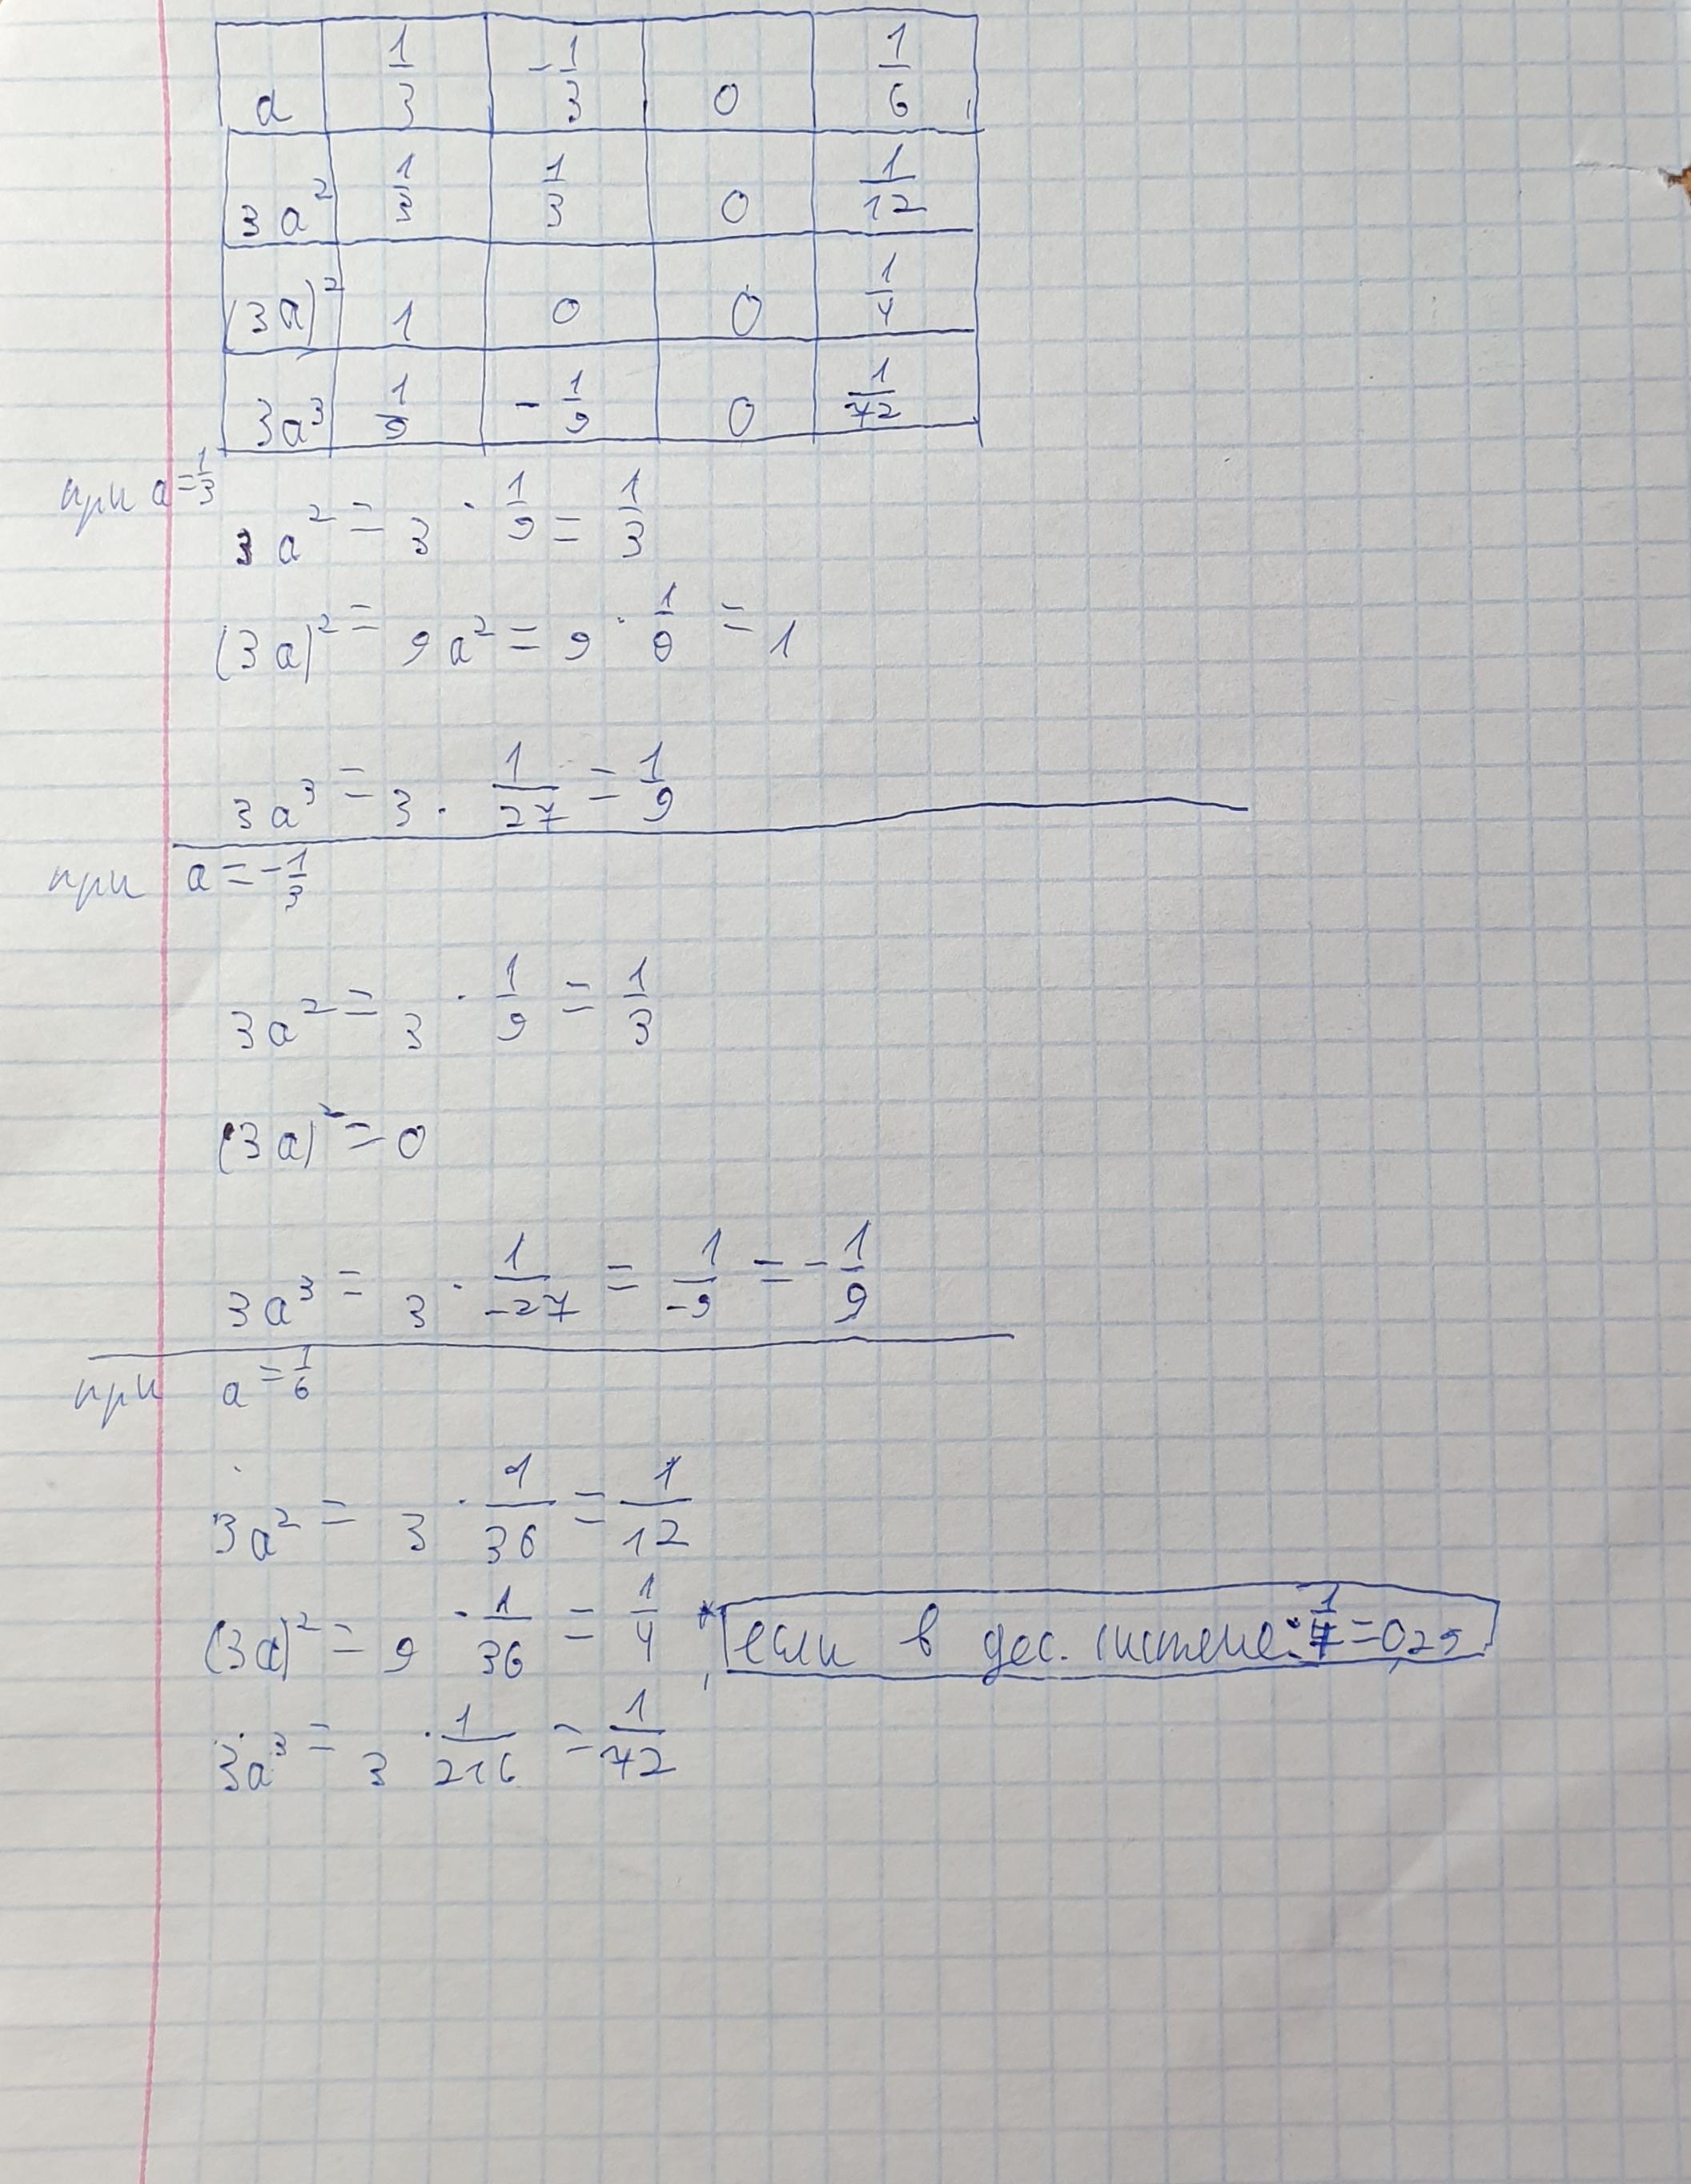 a 1/3 -1/3 0 1/6
3a² 1/3 1/3 0 1/12
(3a)² 1 0 0 1/4
3a³ 1/9 -1/9 0 1/72
при a=1/3
3a² = 3 · 1/9 = 1/3
(3a)² = 9a² = 9 · 1/9 = 1
3a³ = 3 · 1/27 = 1/9
при a = -1/3
3a² = 3 · 1/9 = 1/3
(3a)² = 0
3a³ = 3 · 1/-27 = 1/-9 = -1/9
при a = 1/6
3a² = 3 · 1/36 = 1/12
(3a)² = 9 · 1/36 = 1/4 * если в дес. системе: 1/4 = 0,25
3a³ = 3 · 1/216 = 1/72